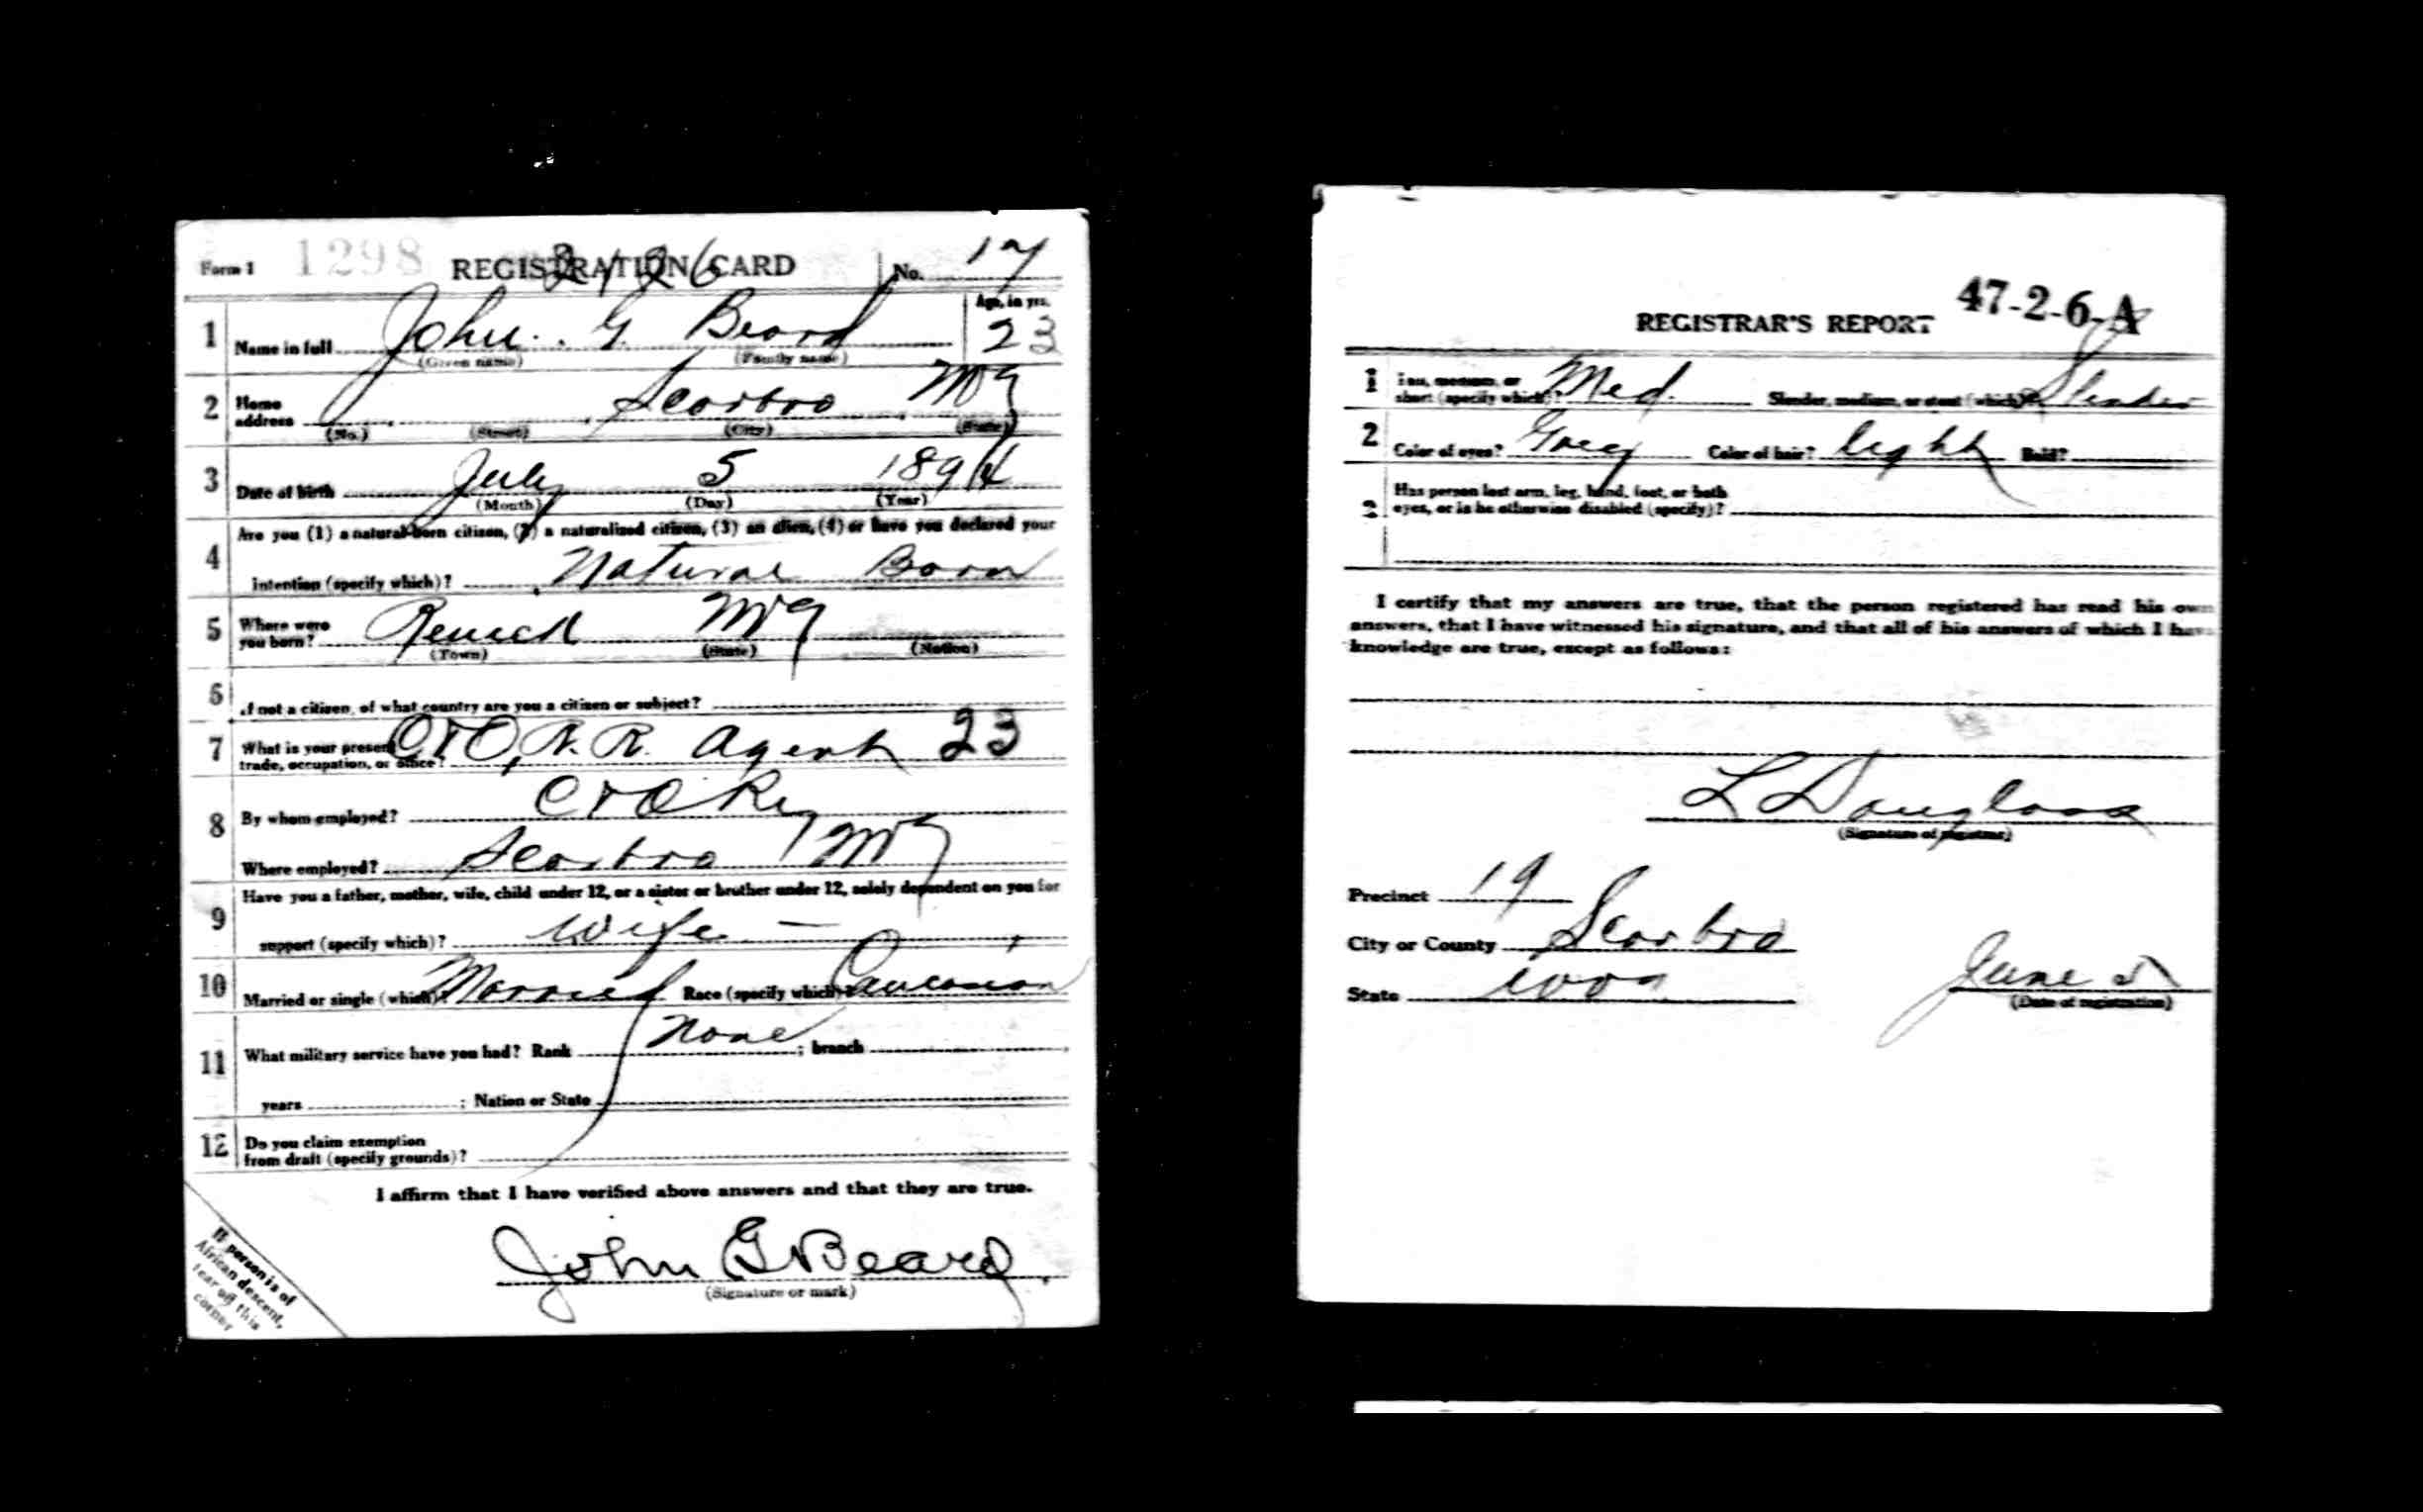 Form 1 1298 REGISTRATION CARD No. 17
2126
Age, in yrs.
1 Name in full John. G. Beard 23
(Given name) (Family name)
2 Home address Scarbro W Va
(No.) (Street) (City) (State)
3 Date of birth July 5 1894
(Month) (Day) (Year)
Are you (1) a natural-born citizen, (2) a naturalized citizen, (3) an alien, (4) or have you declared your
4 intention (specify which)? Natural Born
5 Where were you born? Renick W Va
(Town) (State) (Nation)
6 If not a citizen, of what country are you a citizen or subject?
7 What is your present trade, occupation, or office? C+O, R. R. Agent 23
8 By whom employed? C+O Ry
Where employed? Scarbro W Va
Have you a father, mother, wife, child under 12, or a sister or brother under 12, solely dependent on you for
9 support (specify which)? Wife —
10 Married or single (which)? Married Race (specify which)? Caucasian
11 What military service have you had? Rank None ; branch
years ; Nation or State
12 Do you claim exemption
from draft (specify grounds)?
I affirm that I have verified above answers and that they are true.
John G Beard
(Signature or mark)
If person is of
African descent,
tear off this
corner
47-2-6-A
REGISTRAR'S REPORT
1 Tall, medium, or short (specify which)? Med. Slender, medium, or stout (which)? Slender
2 Color of eyes? Grey Color of hair? light Bald?
3 Has person lost arm, leg, hand, foot, or both
eyes, or is he otherwise disabled (specify)?
I certify that my answers are true, that the person registered has read his own
answers, that I have witnessed his signature, and that all of his answers of which I have
knowledge are true, except as follows:
L Douglass
(Signature of registrar)
Precinct 19
City or County Scarbro
State W Va June 5
(Date of registration)